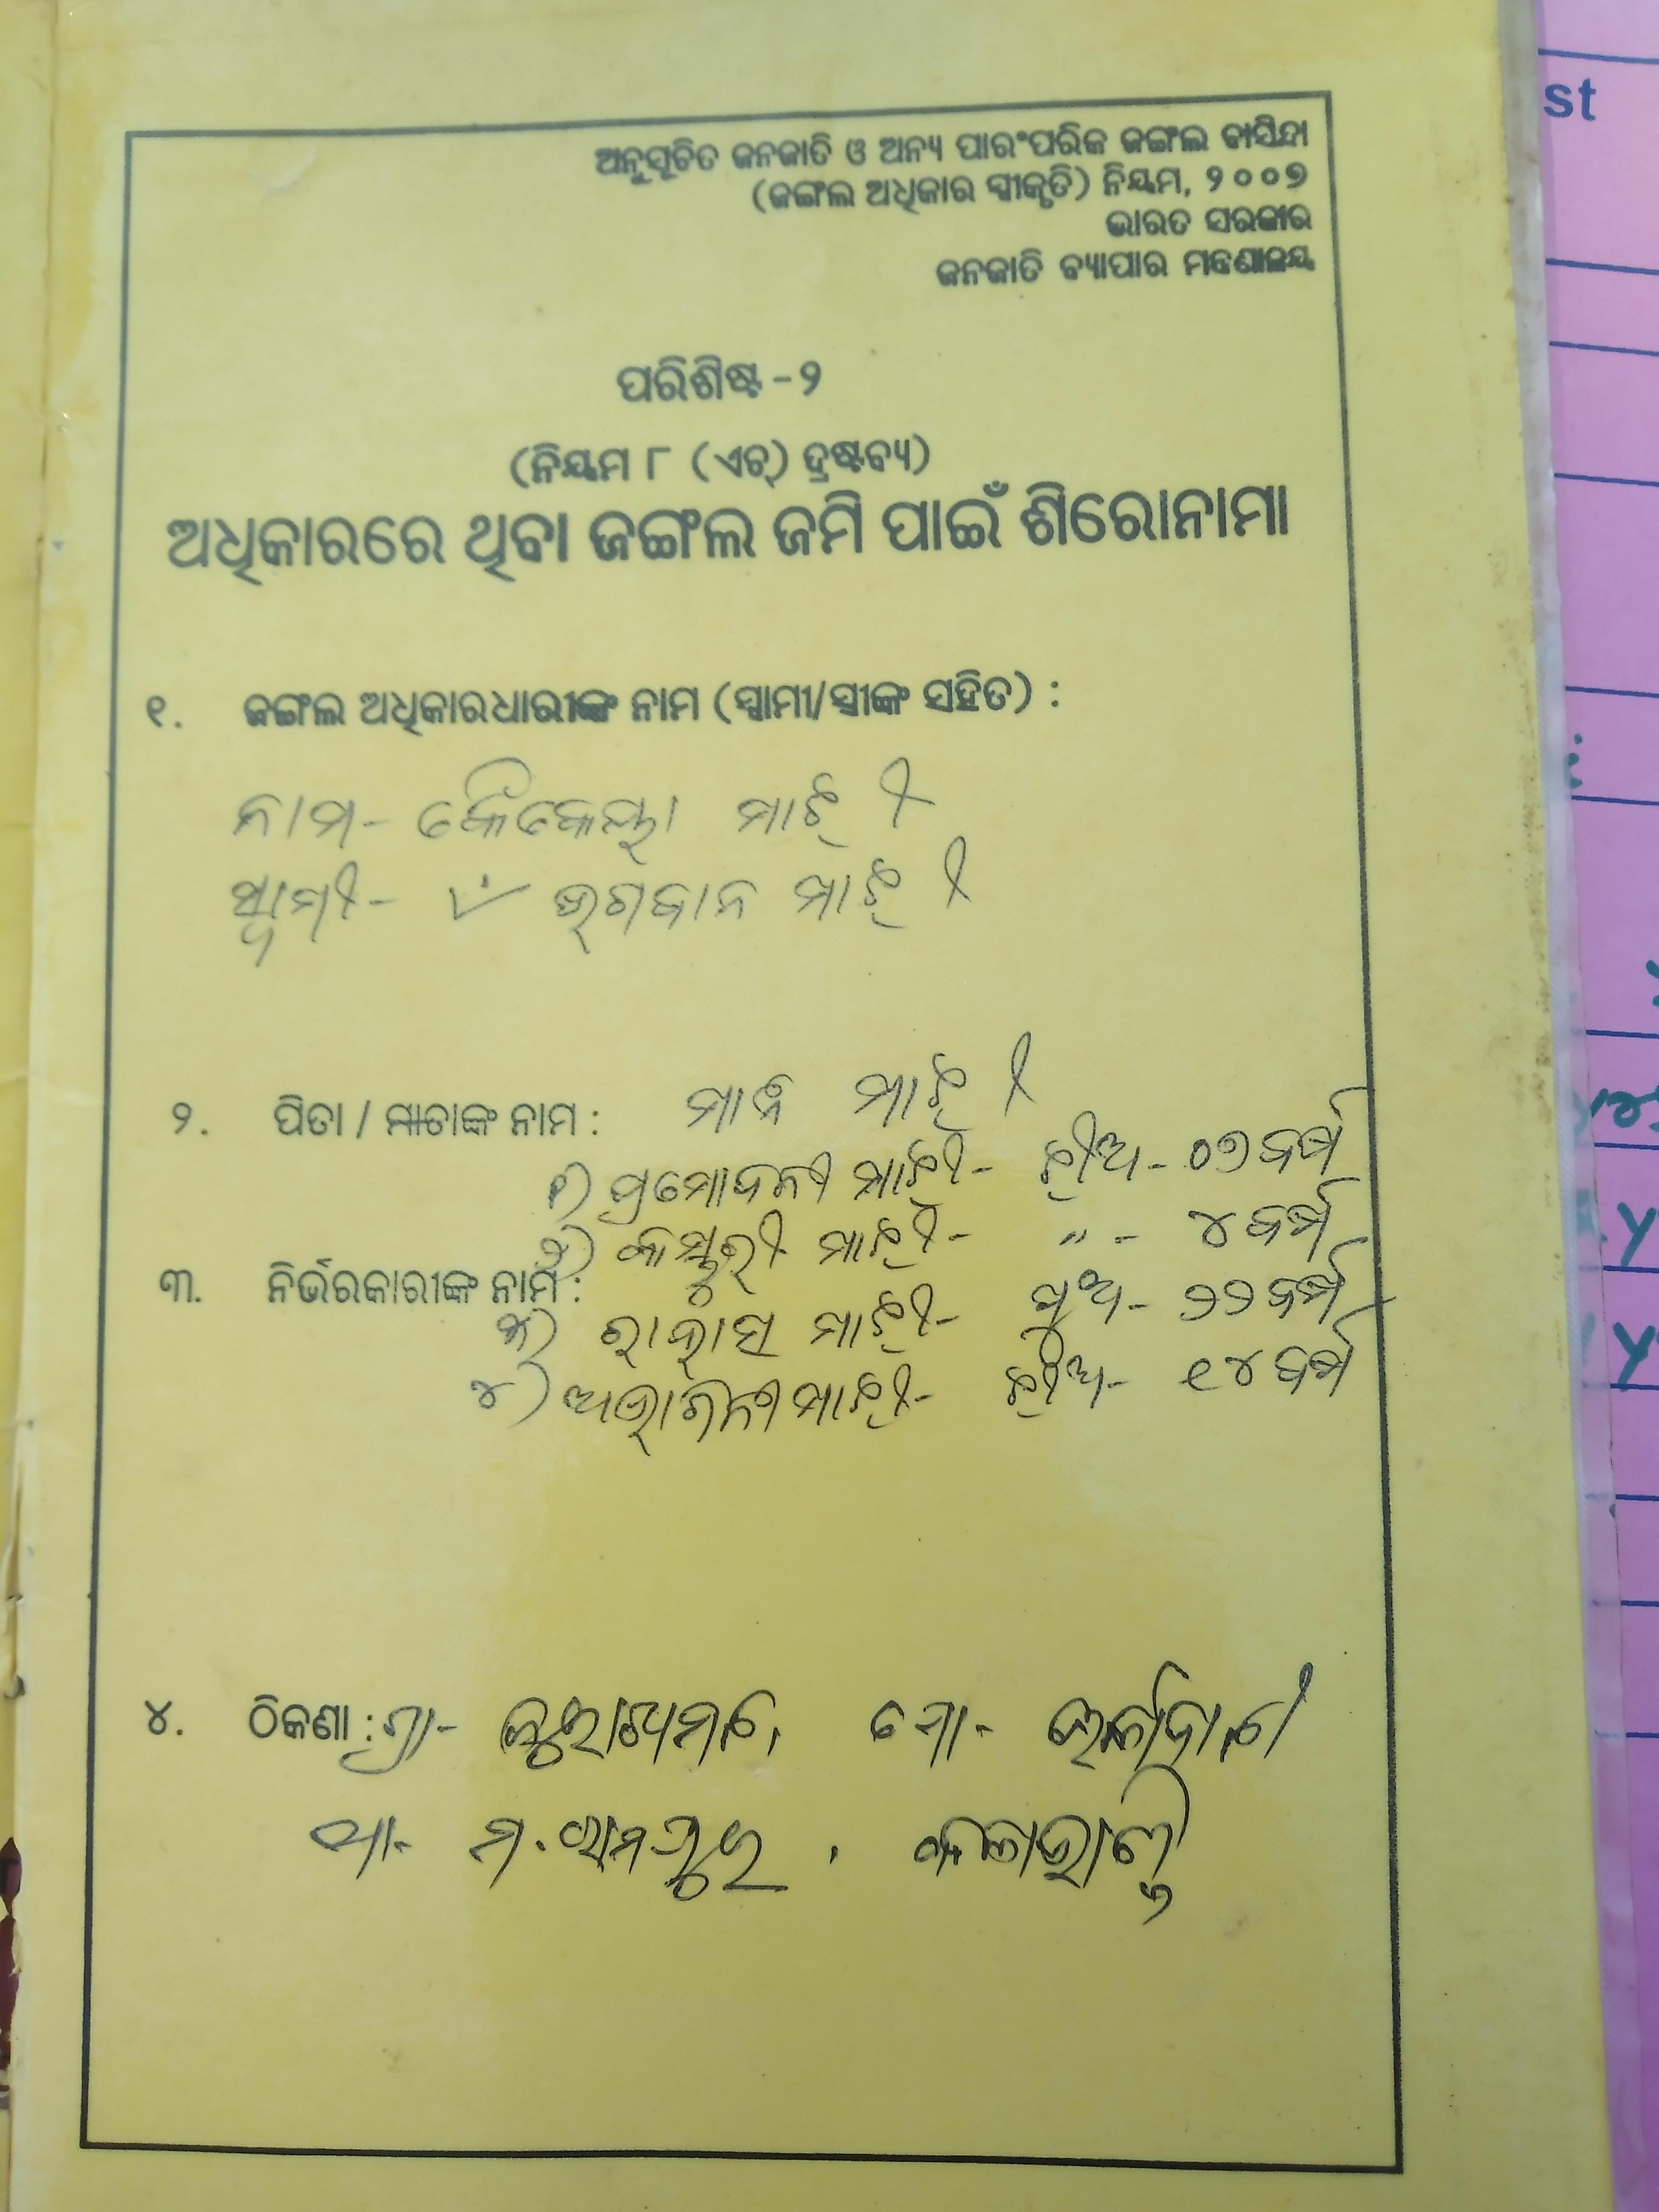 ଅନୁସୂଚିତ ଜନଜାତି ଓ ଅନ୍ୟ ପାରଂପରିକ ଜଙ୍ଗଲ ବାସିନ୍ଦା
(ଜଙ୍ଗଲ ଅଧିକାର ସ୍ଵୀକୃତି) ନିୟମ, ୨୦୦୭
ଭାରତ ସରକାର
ଜନଜାତି ବ୍ୟାପାର ମନ୍ତ୍ରଣାଳୟ
ପରିଶିଷ୍ଟ - ୨
(ନିୟମ ୮ (ଏଚ୍) ଦ୍ରଷ୍ଟବ୍ୟ)
ଅଧିକାରରେ ଥିବା ଜଙ୍ଗଲ ଜମି ପାଇଁ ଶିରୋନାମା
୧. ଜଙ୍ଗଲ ଅଧିକାରଧାରୀଙ୍କ ନାମ (ସ୍ଵାମୀ/ସ୍ତ୍ରୀଙ୍କ ସହିତ) :
ନାମ - କୈକେୟୀ ମାଝୀ
ସ୍ଵାମୀ - ଭଗବାନ ମାଝୀ
୨. ପିତା / ମାତାଙ୍କ ନାମ : ମାନ ମାଝୀ
୧) ପ୍ରମୋଦନୀ ମାଝୀ - ଝୀଅ - ୦୭ ବର୍ଷ
୨) କସ୍ତୁରୀ ମାଝୀ - " - ୪ ବର୍ଷ
୩. ନିର୍ଭରକାରୀଙ୍କ ନାମ :
୩) ମାଝୀ - ପୁଅ - ୨୨ ବର୍ଷ
୪) ଅଭାଗିନୀ ମାଝୀ - ଝୀଅ - ୧୪ ବର୍ଷ
୪. ଠିକଣା : ଗ୍ରା -
ଥା - ମ. ରାମପୁର , କଳାହାଣ୍ଡି